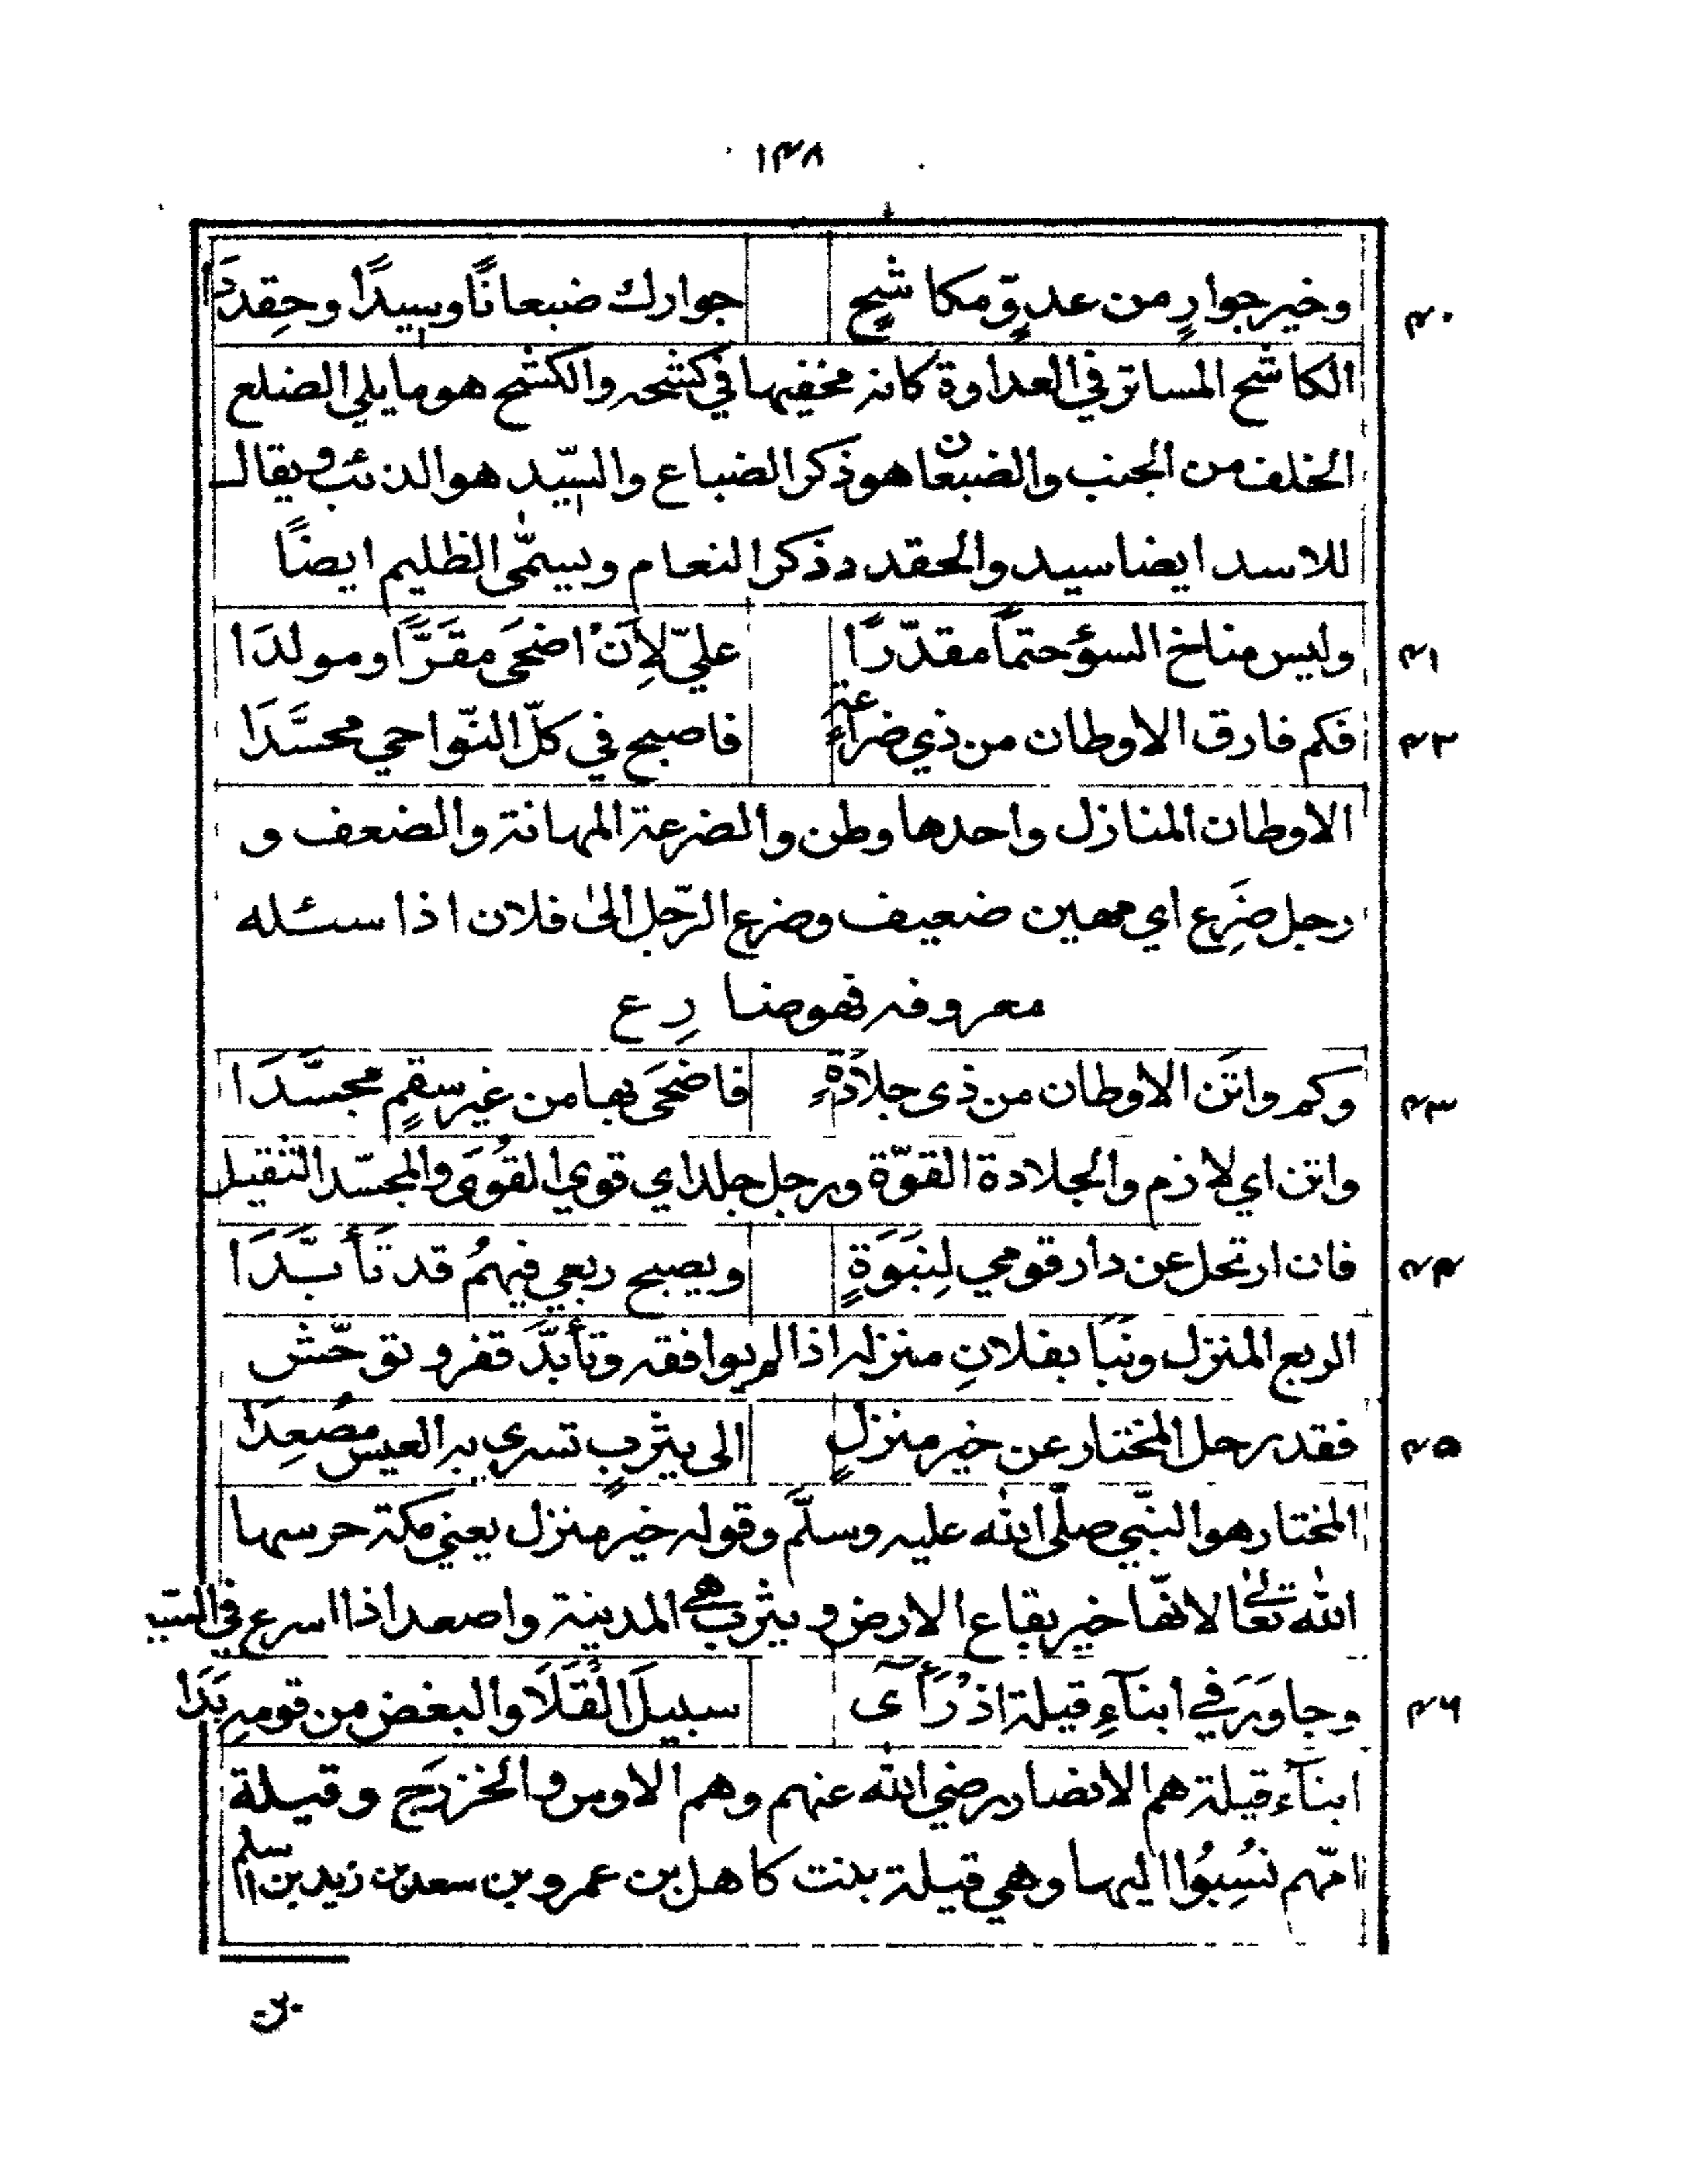 ١٣٨
٤٠ وخير جوارٍ من عدوٍّ مكاشحٍ جوارك ضبعانًا وسيدًا وحِقددَا
الكاشح المساتر في العداوة كانه مخفيها في كشحه والكشح هو ما يلي الضلع
الخلف من الجنب والضبعان هو ذكر الضباع والسّيد هو الذئب ويقال
للاسد ايضا سيد والحقدد ذكر النعام ويسمّى الظليم ايضًا
٤١ وليس مناخ السؤ حتماً مقدّرًا عليّ لِاَنْ اضحَى مقَرَّاً ومولدَا
٤٢ فكم فارق الاوطان من ذي ضراعةٍ فاصبح في كلّ النّواحي محسَّدَا
الاوطان المنازل واحدها وطن والضرعة المهانة والضعف و
رجل ضَرِع اي مهين ضعيف وضرع الرّجل الى فلان اذا سئله
معروفه فهو ضارِع
٤٣ وكم واتَن الاوطان من ذى جلادَةٍ فاضحَى بها من غير سقمٍ مجسَّدَا
واتن اي لازم والجلادة القوّة ورجل جلد اي قوي القُوَى والمجسّد الثقيل
٤٤ فان ارتحل عن دار قومي لِنَبَوَةٍ ويصبح ربعي فيهمُ قد تَأَبَّدَا
الربع المنزل ونَبَا بفلانِ منزله اذا لم يوافقه وتأبَّدَ قفر وتوحّش
٤٥ فقد رحل المختار عن خير منزلٍ الى يثربٍ تسري به العيس مُصعِدَا
المختار هو النّبي صلّى الله عليه وسلّم وقوله خير منزل يعني مكة حرسها
الله تعالى لانّها خير بقاع الارض و يثرب هي المدينة واصعد اذا اسرع في السّير
٤٦ وجاوَرَ في ابنآءِ قيلة اذ رَأَى سبيلَ الْقَلَا والبغض من قومه بَدَا
ابنآء قيلة هم الانصار رضي الله عنهم وهم الاوس والخزرَج وقيلة
امّهم نُسِبُوا اليها وهي قيلة بنت كاهل بن عمرو بن سعد بن زيد بن اسلم